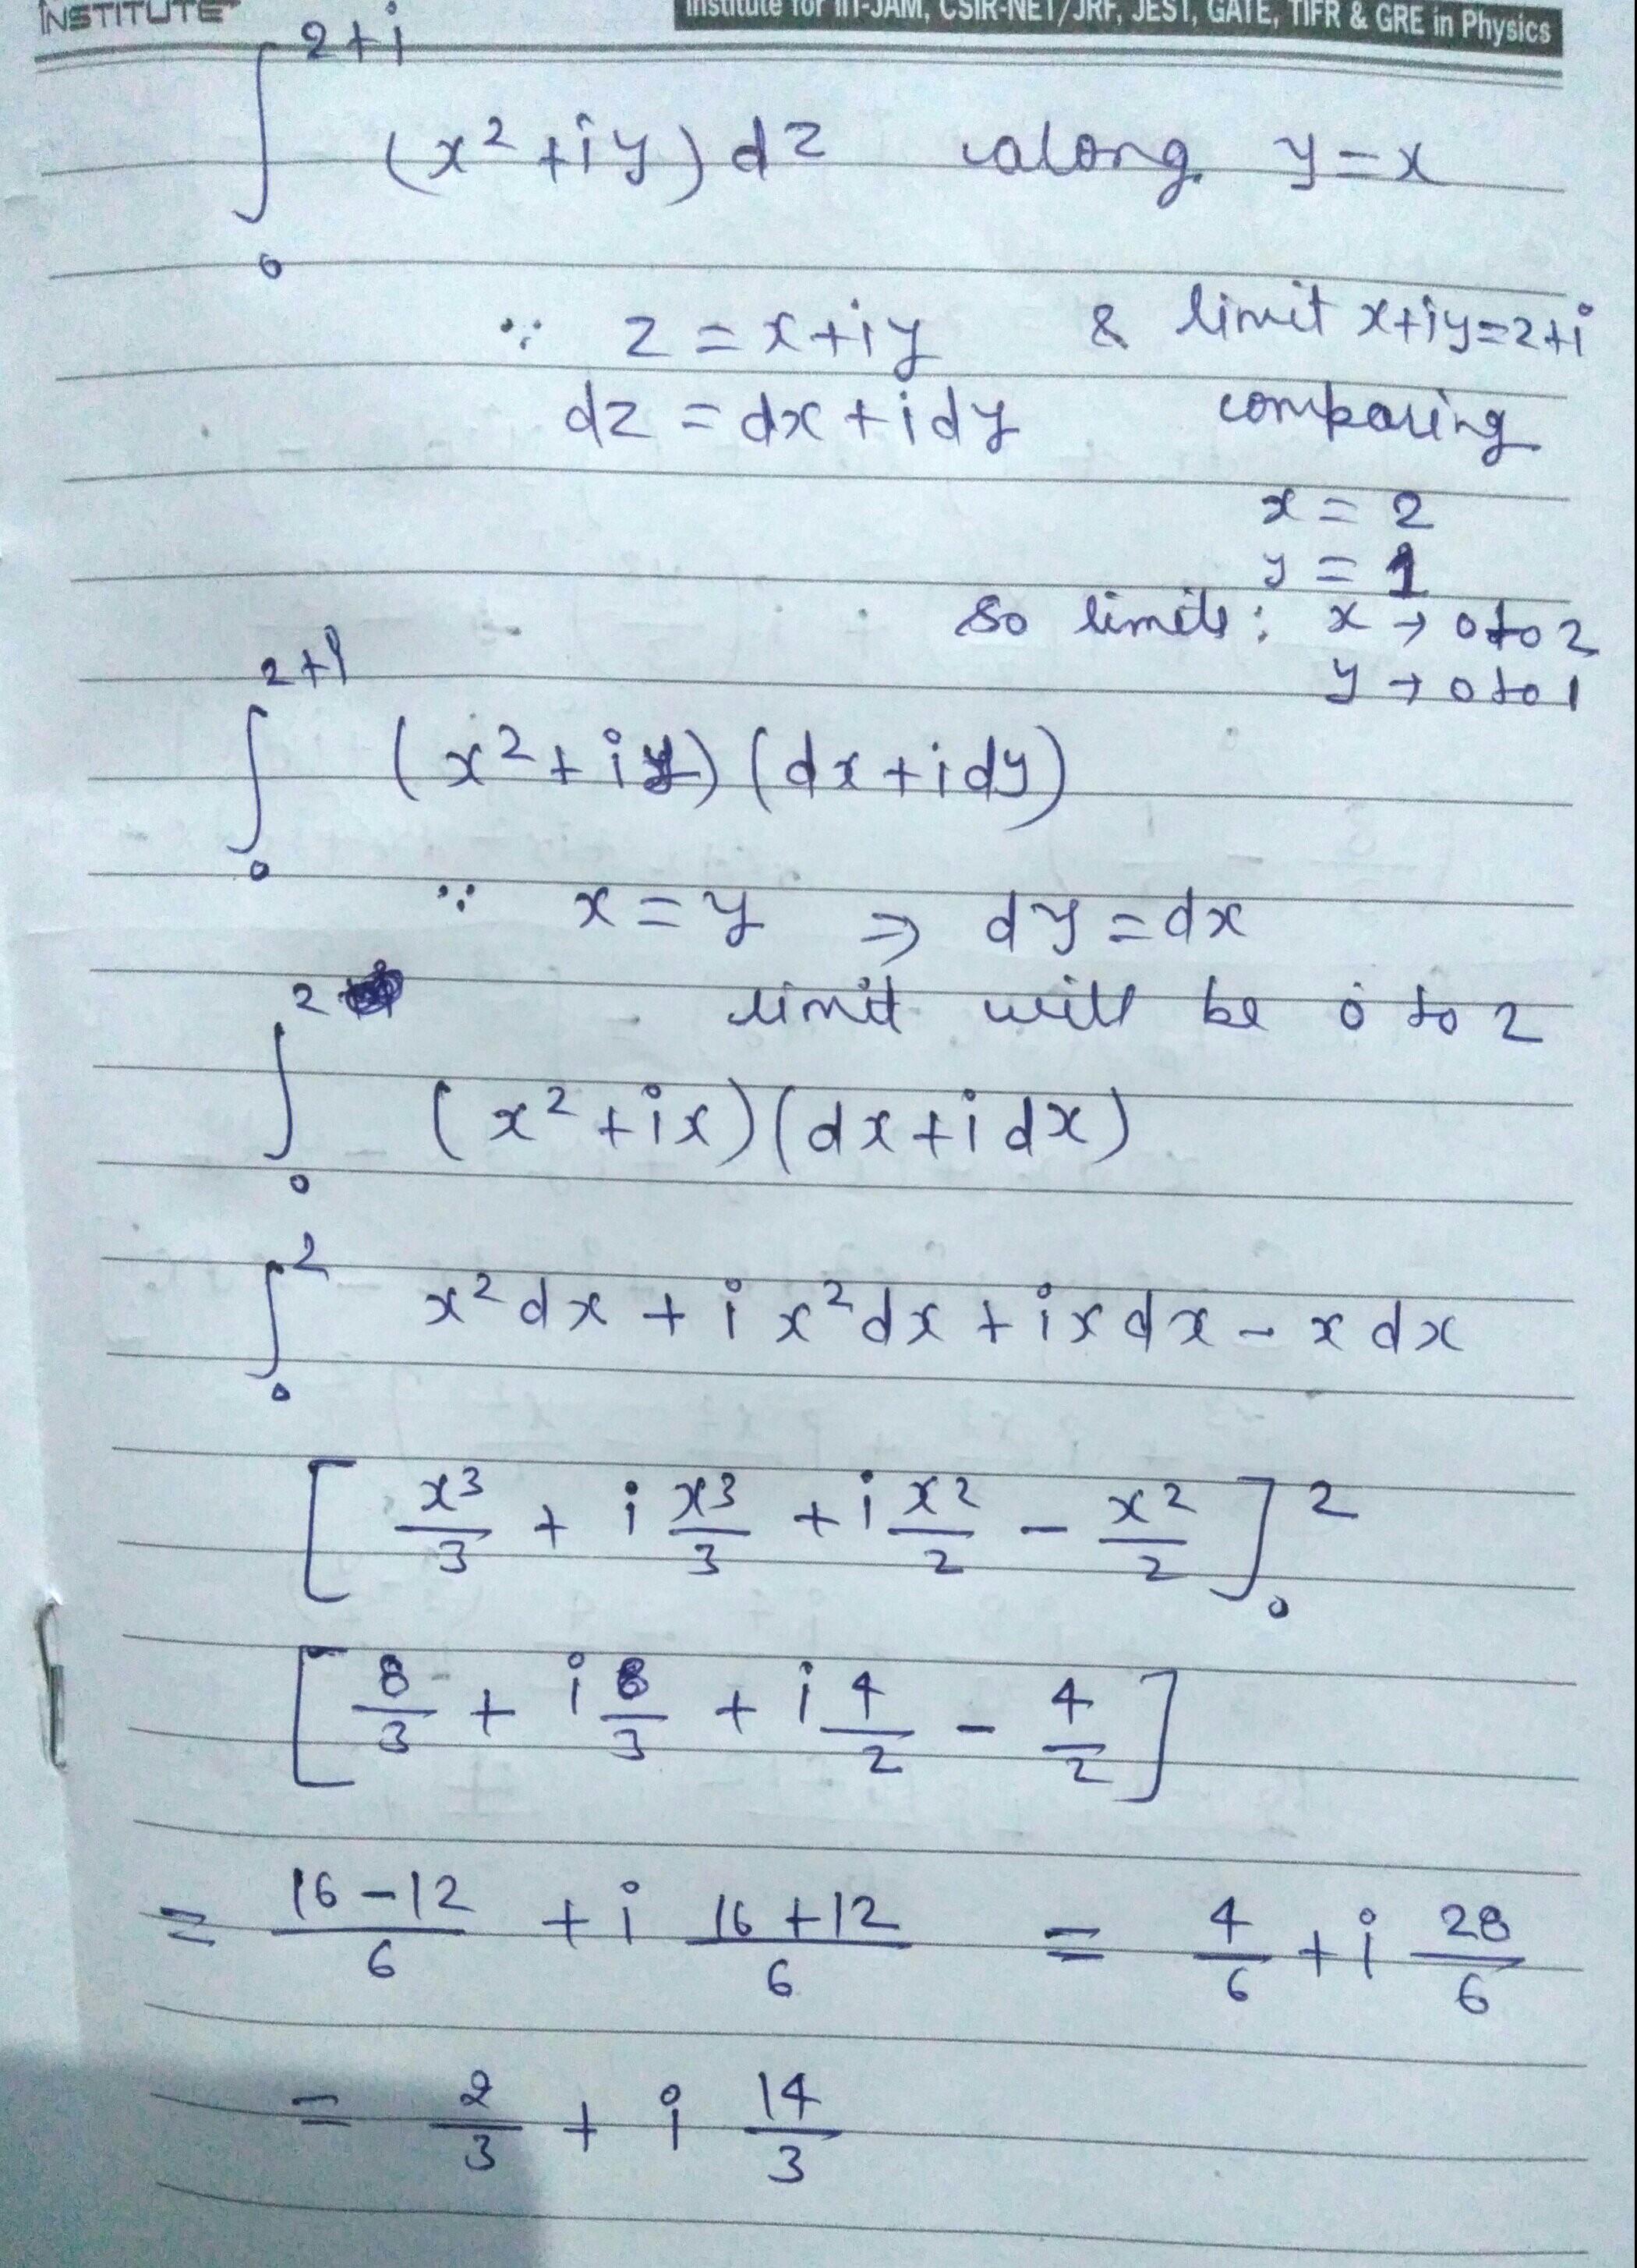 INSTITUTE
Institute for IIT-JAM, CSIR-NET/JRF, JEST, GATE, TIFR & GRE in Physics
∫₀^{2+i} (x² + iy) dz along y = x
∵ z = x + iy & limit x+iy=2+i
dz = dx + idy comparing
x = 2
y = 1
So limits: x → 0 to 2
y → 0 to 1
∫₀^{2+i} (x² + iy) (dx + idy)
∵ x = y ⇒ dy = dx
limit will be 0 to 2
∫₀^{2} (x² + ix) (dx + i dx)
∫₀^{2} x² dx + i x² dx + ix dx - x dx
[ x³/3 + i x³/3 + i x²/2 - x²/2 ]₀²
[ 8/3 + i 8/3 + i 4/2 - 4/2 ]
= (16 - 12)/6 + i (16 + 12)/6 = 4/6 + i 28/6
= 2/3 + i 14/3